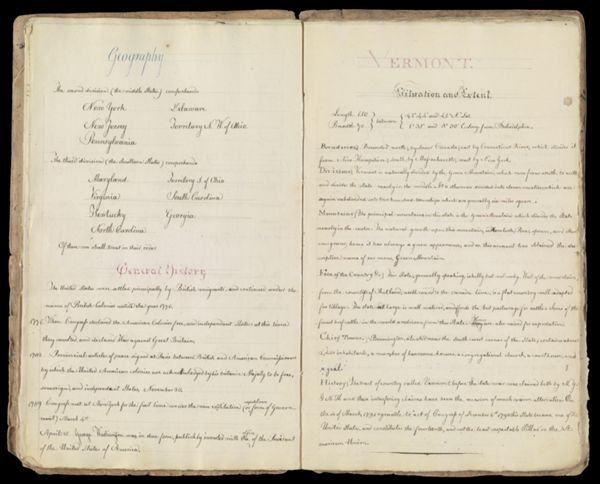 Geography
The second division (the middle States) comprehends
New York Delaware
New Jersey Territory N. W of Ohio
Pennsylvania
The third division (the Southern States) comprehends
Maryland Territory S. of Ohio
Virginia South Carolina
Kentucky Georgia
North Carolina
Of them we shall treat in their order
General History
The United States were settled principally by British emigrants, and continued under the
name of British Colonies until the year 1776.
1776 When Congress declared the American Colonies free and independent States at this time
they
and declared War against Great Britain.
Provincial articles of peace signed at Paris between British and American Commissioners
by which the United American Colonies are acknowledged by his Britannic Majesty to be free,
sovereign, and independent States, November 30.
1789 Congress met at New York for the first time under the new constitution (or form of Govern-
ment) March 4th
April 30 George Washington was in due form, publickly invested with the office of the President
of the United States of America.
VERMONT.
Situation and Extent.
Length 150
Breadth 70 between
and 45° N. Lat.
and Long. from Philadelphia.
Boundaries) Bounded north, by Canada; east by Connecticut River, which divides it
from New Hampshire; south, by Massachusetts; west by New York.
Divisions) Vermont is naturally divided by the Green Mountain, which runs from south to north
and divides the State nearly in the middle. It is otherwise divided into counties which are
again subdivided into townships which are generally six miles square.
Mountains) The principal mountain in this state is the Green Mountain which divides the State
nearly in the centre. The natural growth upon this mountain, is Hemlock, Pine, spruce, and other
evergreens; hence it has always a green appearance, and on this account has obtained the de-
scriptive name of Green Mountain.
Face of the Country &c) This State, generally speaking, is hilly but not rocky. West of the mountain,
from the county of Rutland, northward to the Canada line, is a flat country well adapted
for tillage. The state at large is well watered, and affords the best pasturage for cattle. Some of the
finest beef cattle in the world are driven from this State. Horses are also raised for exportation.
Chief Towns.) Bennington, situated near the south west corner of the State, contains about
inhabitants, a number of handsome houses, a congregational church, a court house, and
a gaol.
History) The tract of country called Vermont before the late war was claimed both by
N. Y. & N. H. and their interfering claims have been the occasion of much warm altercation. On
the of March, 1791 agreeable to act of Congress of December 6th 1790 this State became one of the
United States, and constitutes the fourteenth, and not the least respectable Pillar in the A-
merican Union.